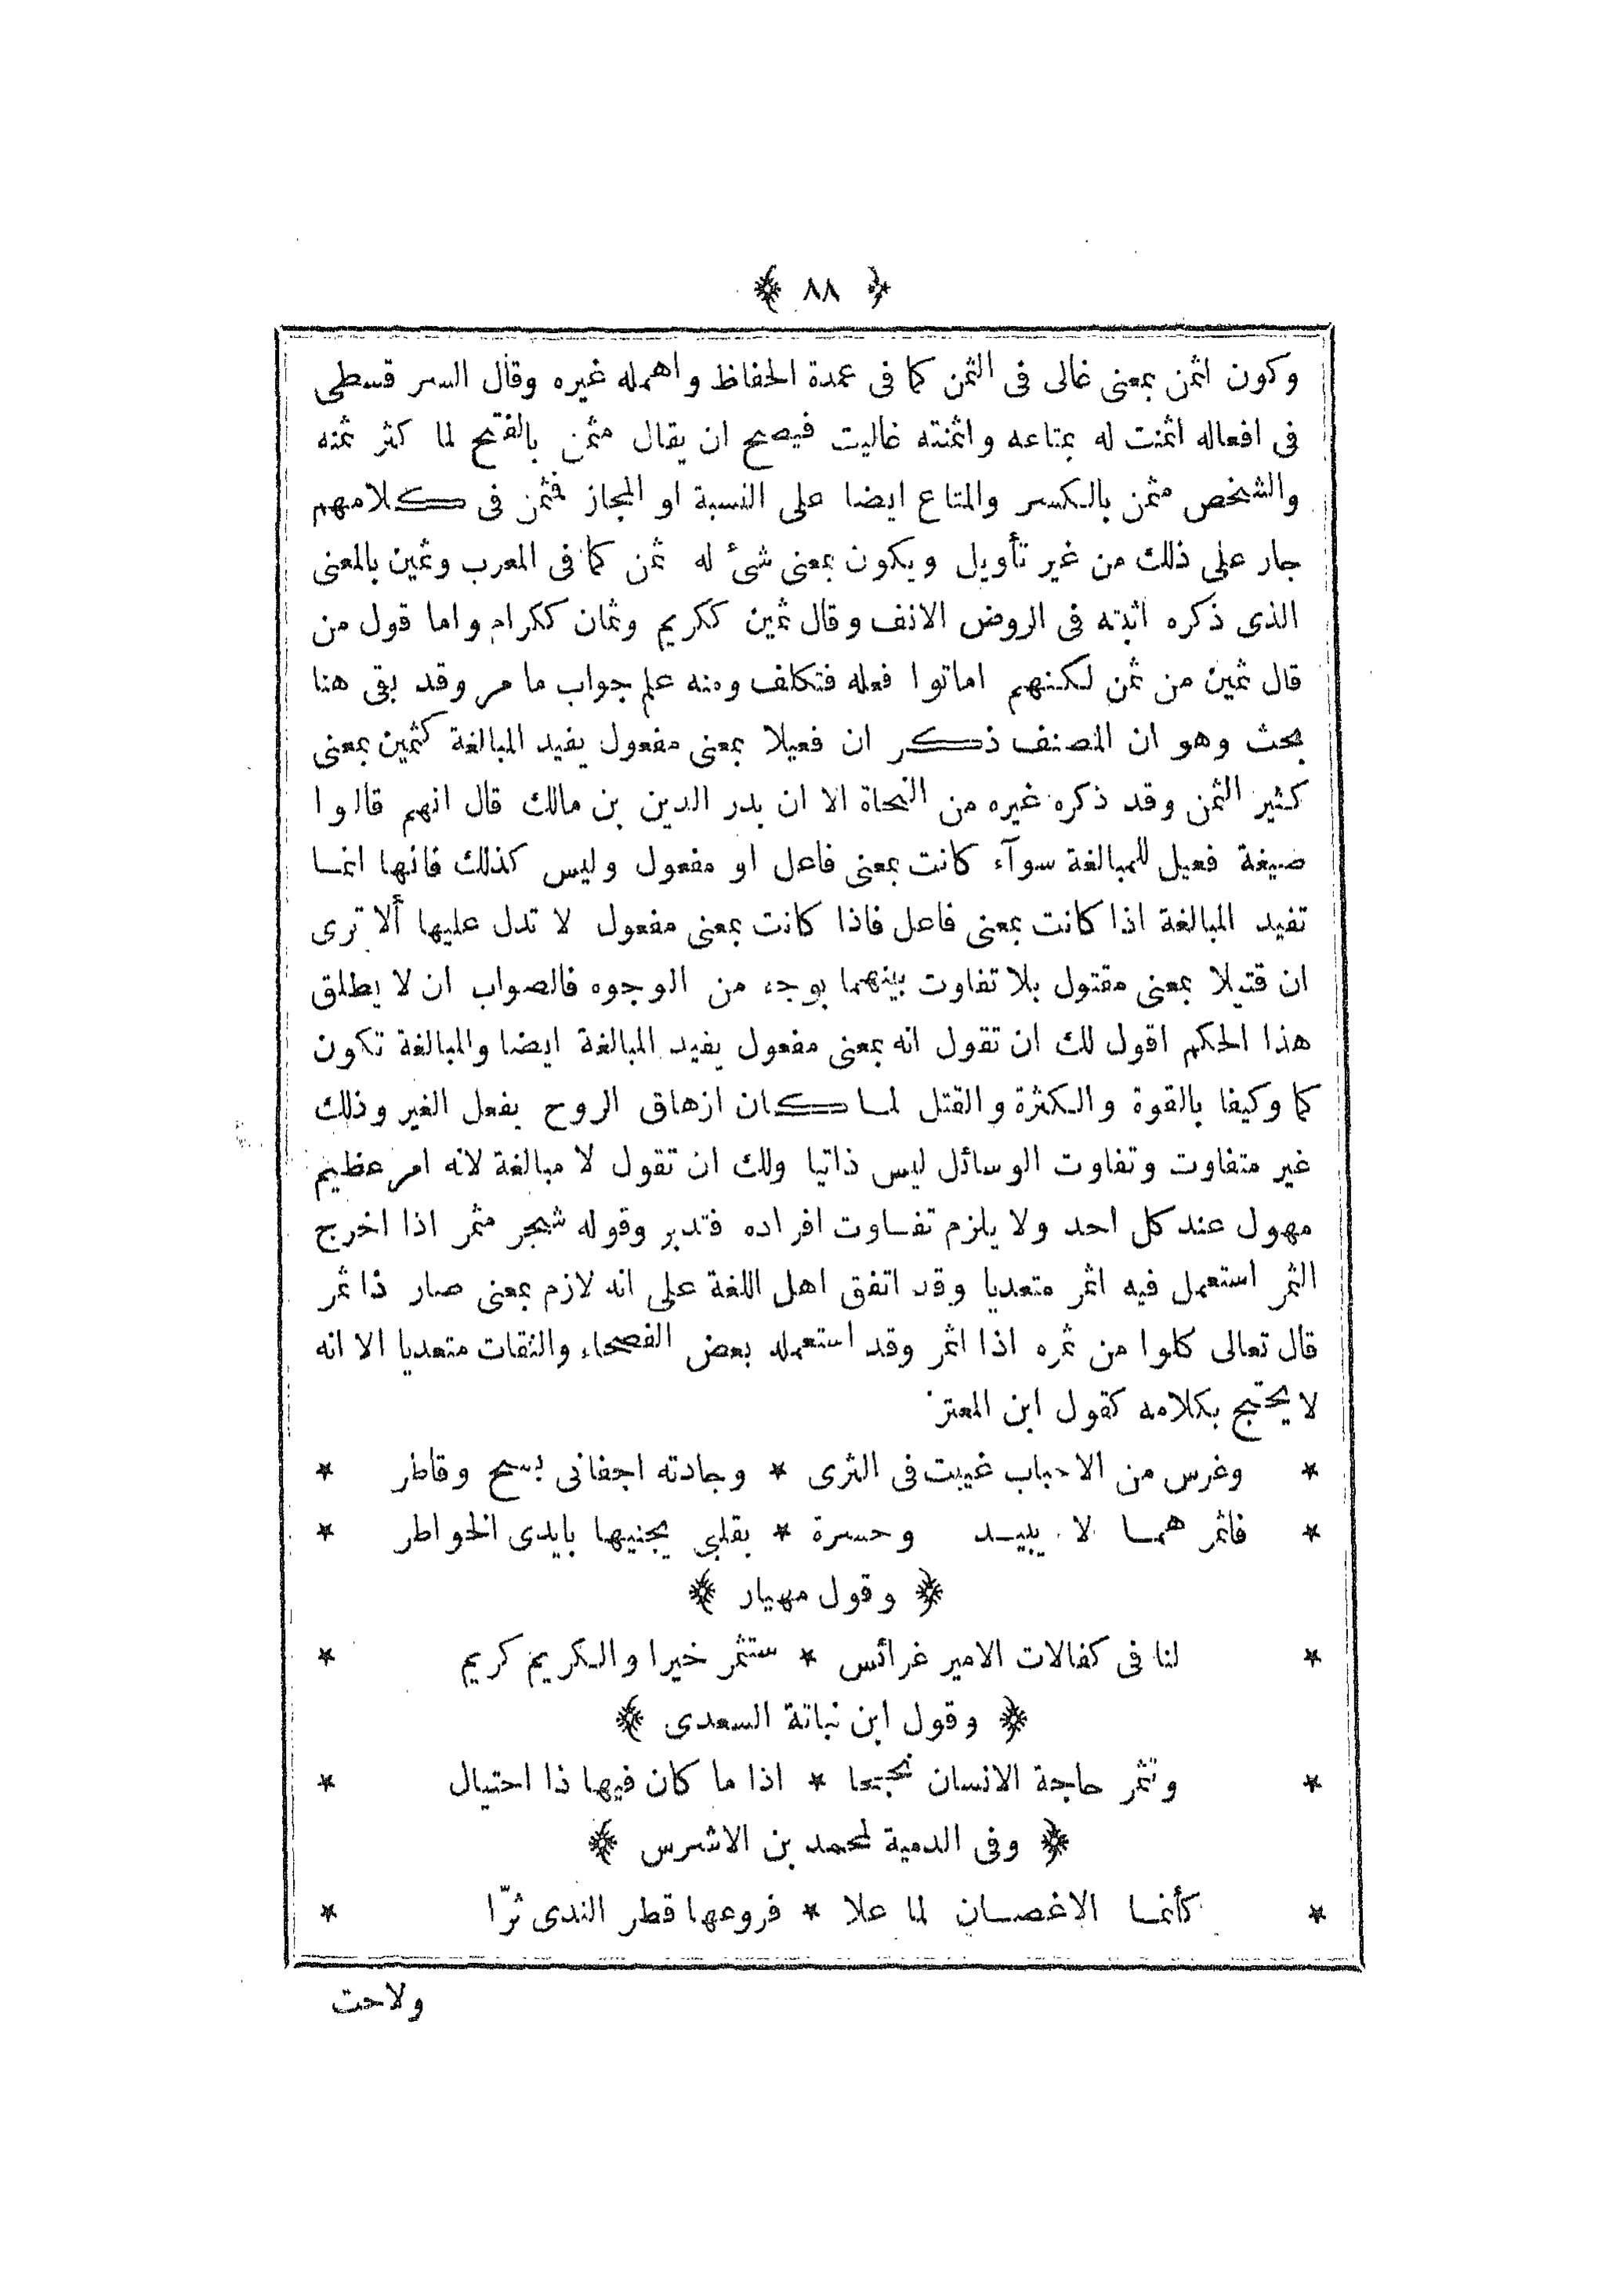 ﴿ ٨٨ ﴾
وكون اثمن بمعنى غالى فى الثمن كما فى عمدة الحفاظ واهمله غيره وقال السر قسطى
فى افعاله اثمنت له بمتاعه واثمنته غاليت فيصح ان يقال مثمن بالفتح لما كثر ثمنه
والشخص مثمن بالكسر والمتاع ايضا على النسبة او المجاز فمثمن فى كلامهم
جار على ذلك من غير تأويل ويكون بمعنى شئ له ثمن كما فى المعرب وثمين بالمعنى
الذى ذكره اثبته فى الروض الانف وقال ثمين ككريم وثمان ككرام واما قول من
قال ثمين من ثمن لكنهم اماتوا فعله فتكلف ومنه علم جواب ما مر وقد بقى هنا
بحث وهو ان المصنف ذكر ان فعيلا بمعنى مفعول يفيد المبالغة كثمين بمعنى
كثير الثمن وقد ذكره غيره من النحاة الا ان بدر الدين بن مالك قال انهم قالوا
صيغة فعيل للمبالغة سوآء كانت بمعنى فاعل او مفعول وليس كذلك فانها انما
تفيد المبالغة اذا كانت بمعنى فاعل فاذا كانت بمعنى مفعول لا تدل عليها ألا ترى
ان قتيلا بمعنى مقتول بلا تفاوت بينهما بوجه من الوجوه فالصواب ان لا يطلق
هذا الحكم اقول لك ان تقول انه بمعنى مفعول يفيد المبالغة ايضا والمبالغة تكون
كما وكيفا بالقوة والكثرة والقتل لما كان ازهاق الروح بفعل الغير وذلك
غير متفاوت وتفاوت الوسائل ليس ذاتيا ولك ان تقول لا مبالغة لانه امر عظيم
مهول عند كل احد ولا يلزم تفاوت افراده فتدبر وقوله شجر مثمر اذا اخرج
الثمر استعمل فيه اثمر متعديا وقد اتفق اهل اللغة على انه لازم بمعنى صار ذا ثمر
قال تعالى كلوا من ثمره اذا اثمر وقد استعمله بعض الفصحاء والثقات متعديا الا انه
لا يحتج بكلامه كقول ابن المعتز
* وغرس من الاحباب غيبت فى الثرى * وجادته اجفانى بسح وقاطر *
* فاثمر هما لا يبيد وحسرة * بقلبى يجنيها بايدى الخواطر *
﴿ وقول مهيار ﴾
* لنا فى كفالات الامير غرائس * ستثمر خيرا والكريم كريم *
﴿ وقول ابن نباتة السعدى ﴾
* وتثمر حاجة الانسان نجحا * اذا ما كان فيها ذا احتيال *
﴿ وفى الدمية لمحمد بن الاشرس ﴾
* كأنما الاغصان لما علا * فروعها قطر الندى ثرّا *
ولاحت